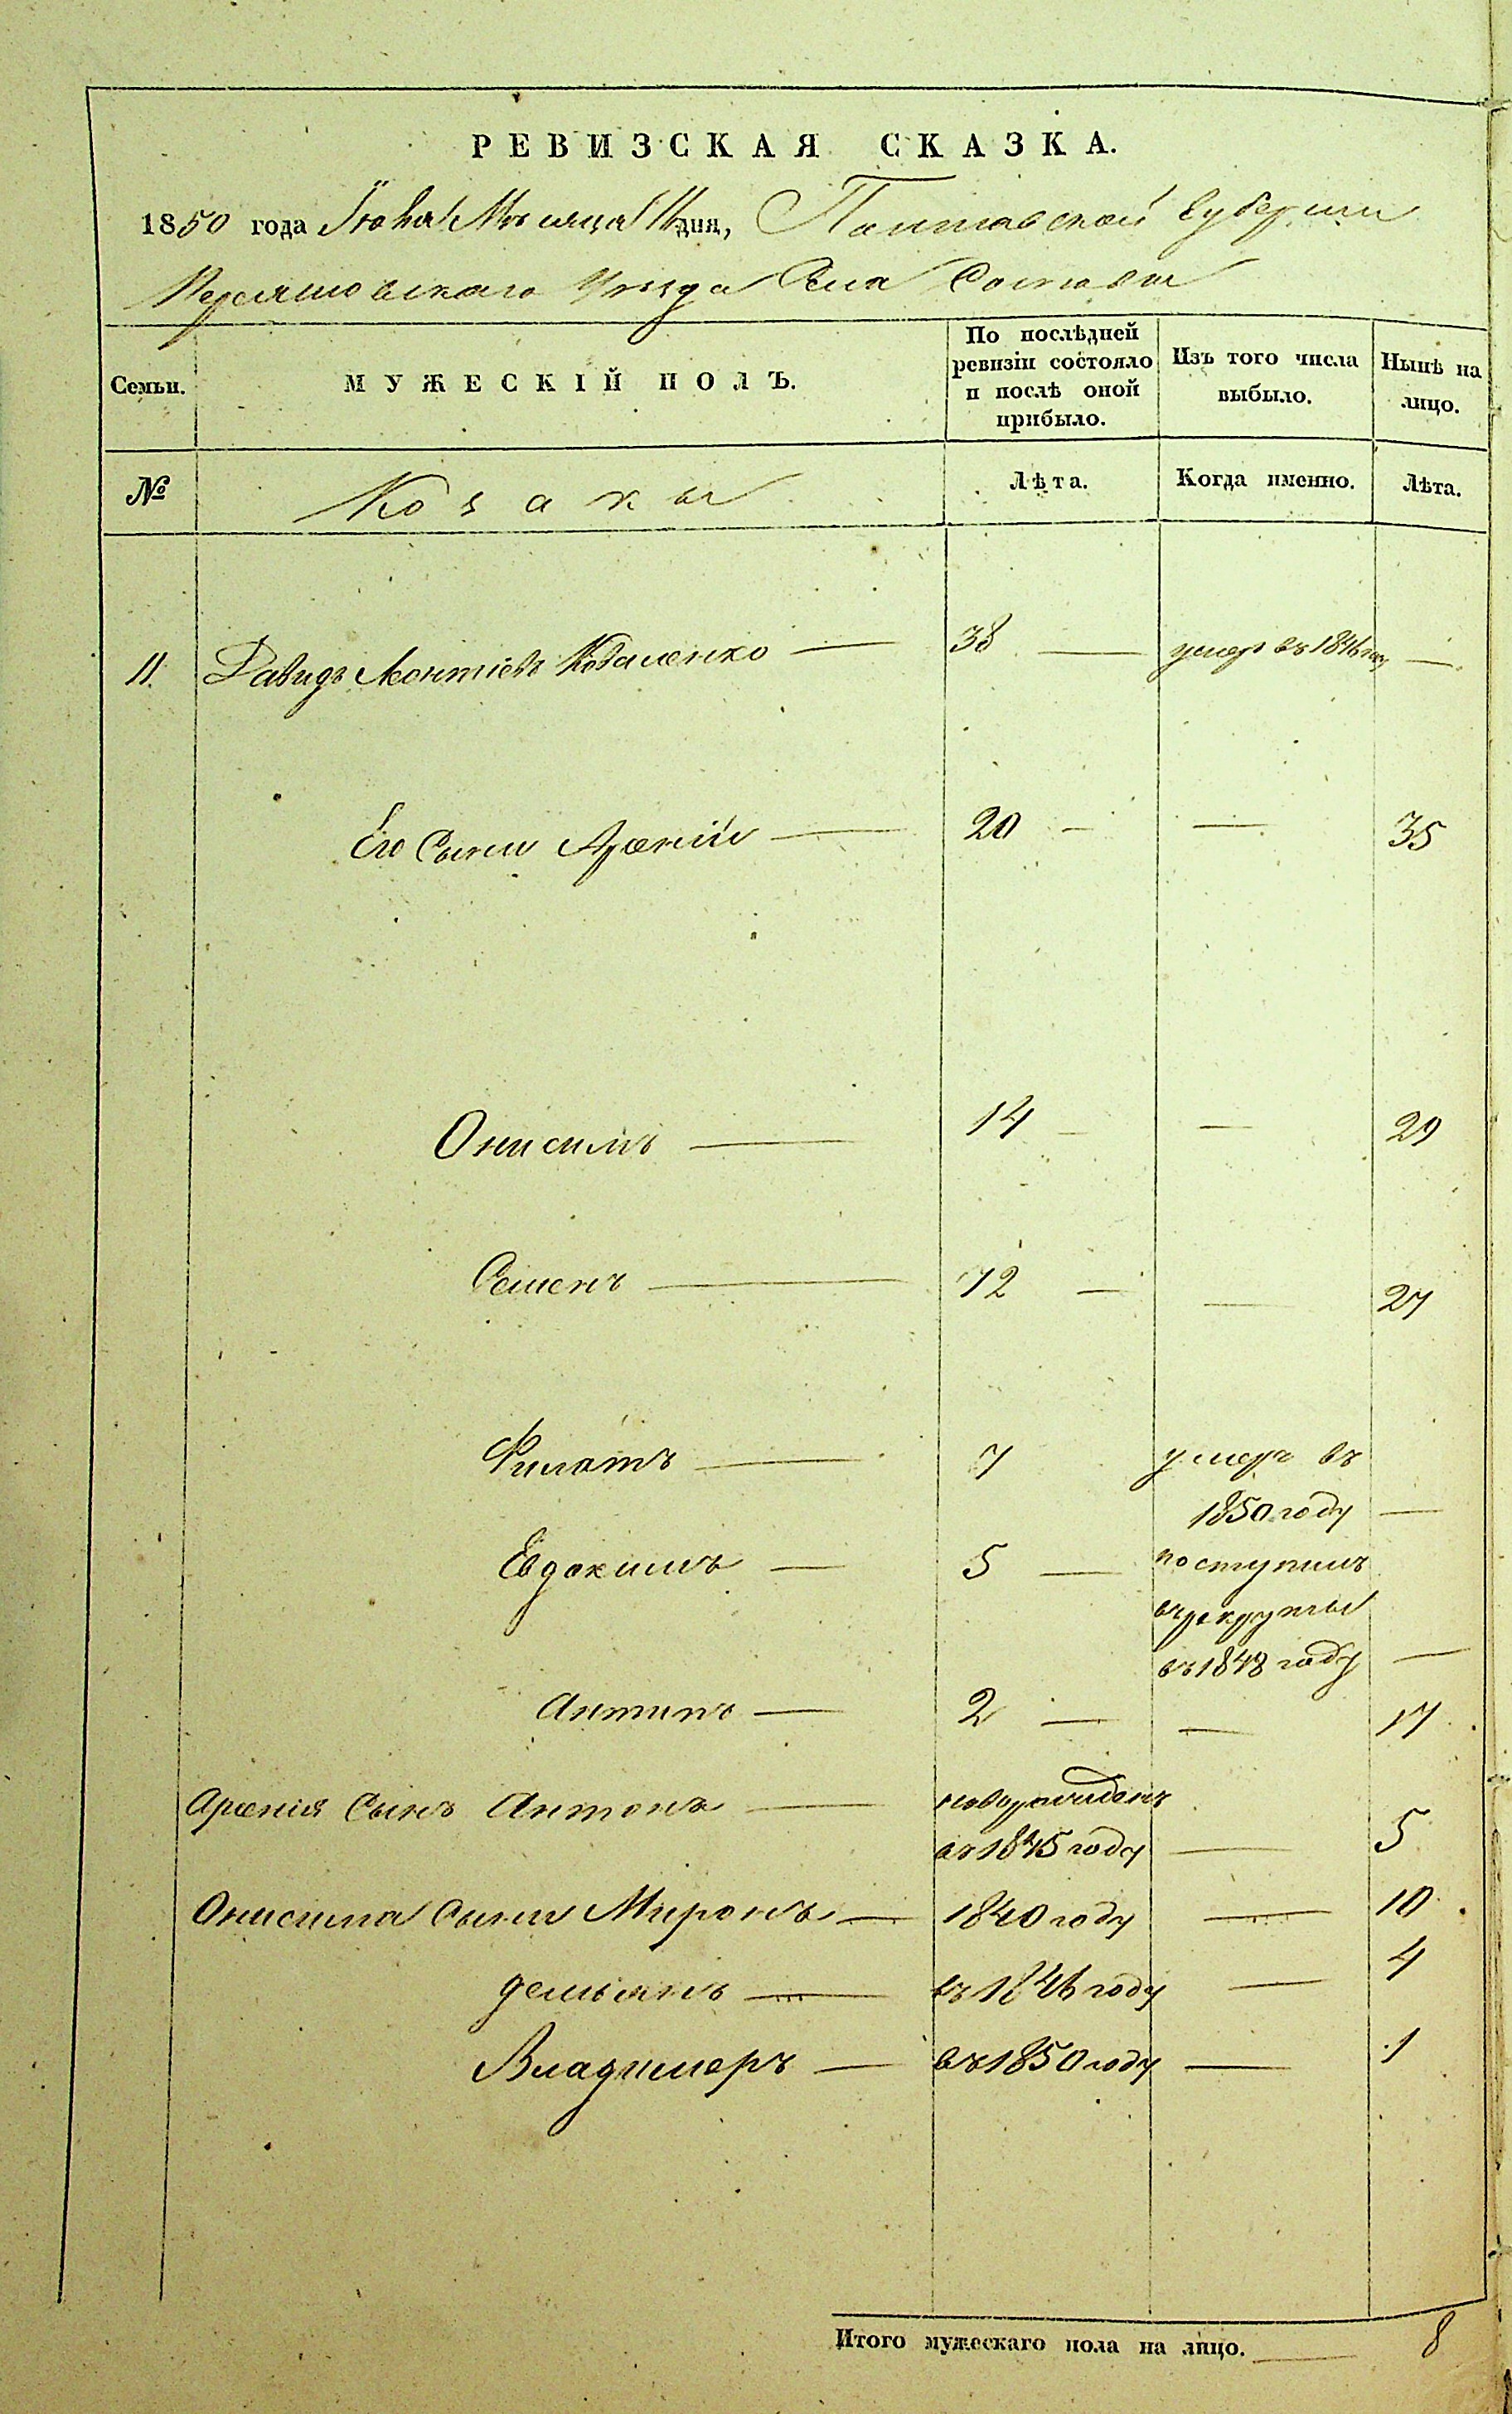 РЕВИЗСКАЯ СКАЗКА.
1850 года Іюня Мѣсяца 16 дня, Полтавской Губерніи
Переяславскаго Уѣзда Села Сосновы
Семьи. МУЖЕСКІЙ ПОЛЪ. По послѣдней ревизіи состояло и послѣ оной прибыло. Изъ того числа выбыло. Нынѣ на лицо.
№ Козаки Лѣта. Когда именно. Лѣта.
11 Давидъ Леонтіевъ Коваленко — 38 — умеръ въ 1846 году —
Его Сыни Арсеній — 20 — — 35
Онисимъ — 14 — — 29
Семенъ — 12 — — 27
Филатъ — 7 умеръ въ
1850 году —
Евдокимъ — 5 — поступилъ
въ рекруты
въ 1848 году —
Антипъ — 2 — — 17
Арсенія Сынъ Антонъ — новорожденъ
въ 1845 году — 5
Онисима Сыни Миронъ — 1840 году — 10
Демьянъ — въ 1846 году — 4
Владимеръ — въ 1850 году — 1
Итого мужескаго пола на лицо. — 8